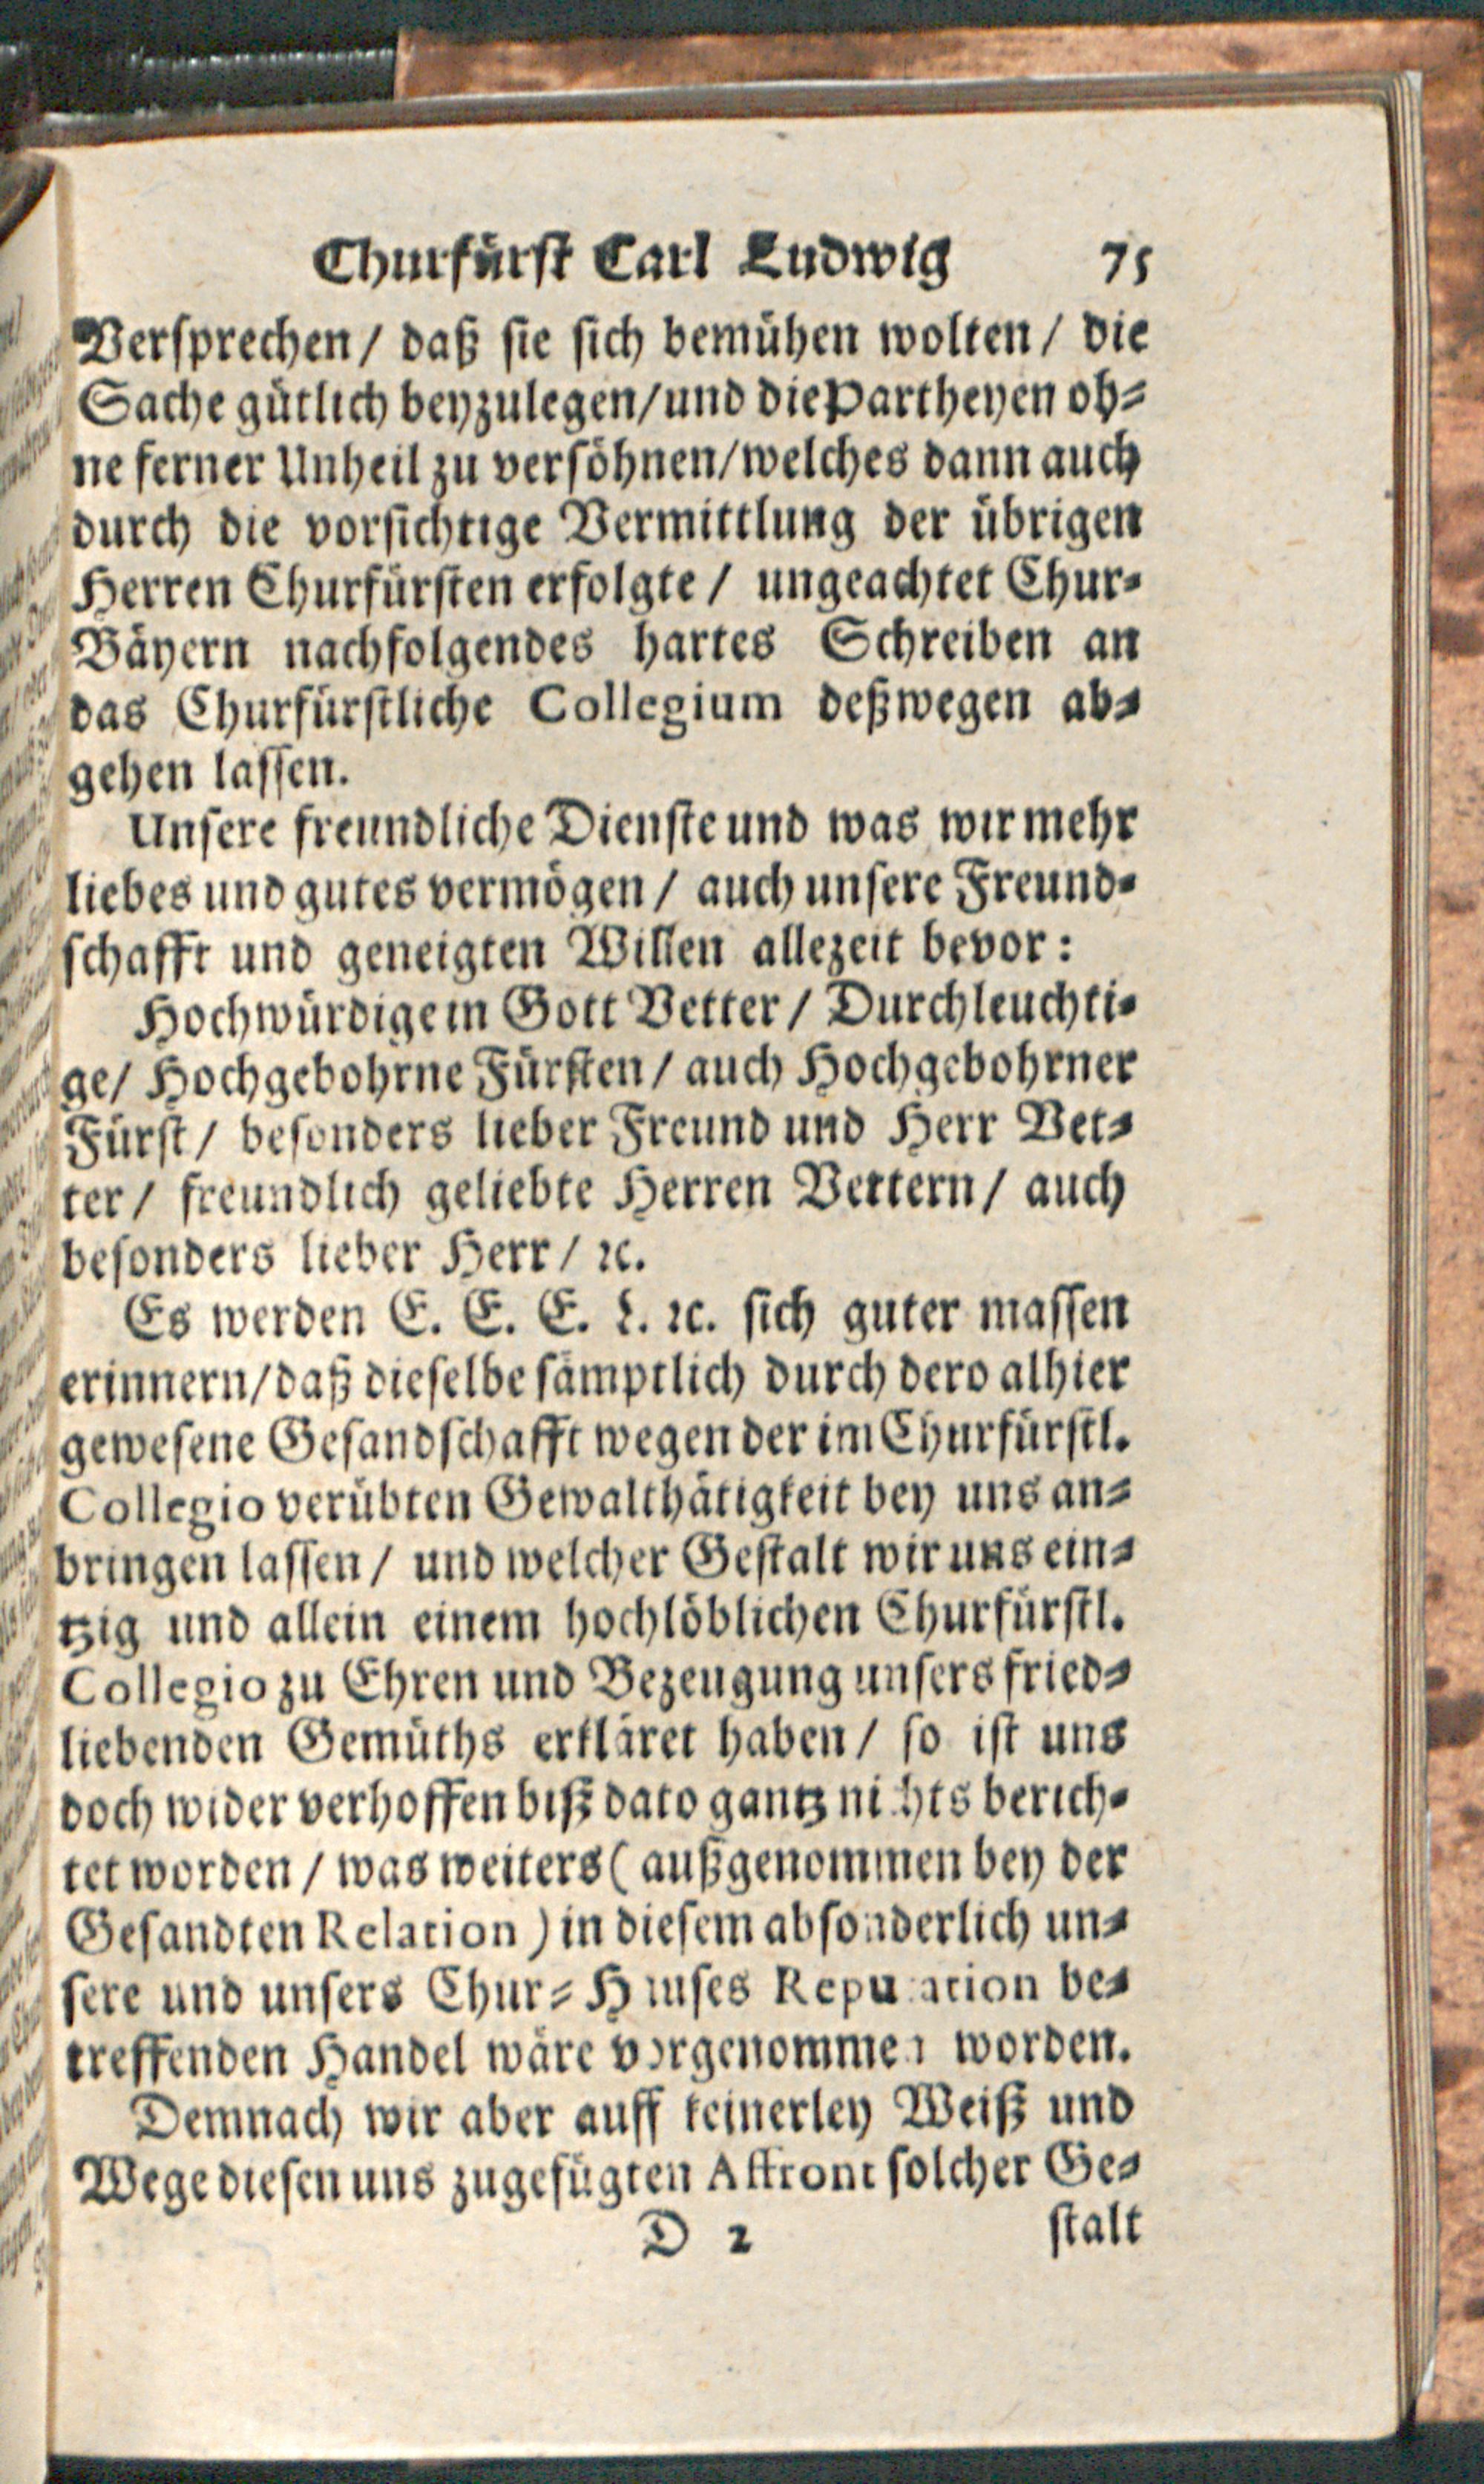 Churfürst Carl Ludwig 75
Versprechen / daß sie sich bemühen wolten / die
Sache gütlich beyzulegen / und die Partheyen oh⸗
ne ferner Unheil zu versöhnen / welches dann auch
durch die vorsichtige Vermittlung der übrigen
Herren Churfürsten erfolgte / ungeachtet Chur⸗
Bäyern nachfolgendes hartes Schreiben an
das Churfürstliche Collegium deßwegen ab⸗
gehen lassen.
Unsere freundliche Dienste und was wir mehr
liebes und gutes vermögen / auch unsere Freund⸗
schafft und geneigten Willen allezeit bevor:
Hochwürdige in Gott Vetter / Durchleuchti⸗
ge / Hochgebohrne Fürsten / auch Hochgebohrner
Fürst / besonders lieber Freund und Herr Vet⸗
ter / freundlich geliebte Herren Vettern / auch
besonders lieber Herr / ꝛc.
Es werden E. E. E. L. ꝛc. sich guter massen
erinnern / daß dieselbe sämptlich durch dero alhier
gewesene Gesandschafft wegen der im Churfürstl.
Collegio verübten Gewalthätigkeit bey uns an⸗
bringen lassen / und welcher Gestalt wir uns ein⸗
tzig und allein einem hochlöblichen Churfürstl.
Collegio zu Ehren und Bezeugung unsers fried⸗
liebenden Gemüths erkläret haben / so ist uns
doch wider verhoffen biß dato gantz nichts berich⸗
tet worden / was weiters ( außgenommen bey der
Gesandten Relation ) in diesem absonderlich un⸗
sere und unsers Chur⸗Hauses Reputation be⸗
treffenden Handel wäre vorgenommen worden.
Demnach wir aber auff keinerley Weiß und
Wege diesen uns zugefügten Affront solcher Ge⸗
D 2 stalt